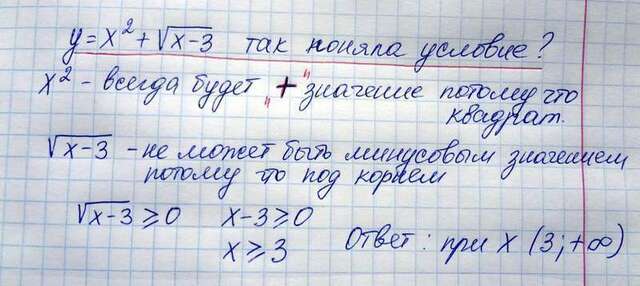 y = x² + √x-3 так поняла условие?
x² - всегда будет "+" значение потому что
квадрат.
√x-3 - не может быть минусовым значением
потому что под корнем
√x-3 ⩾ 0 x-3 ⩾ 0
x ⩾ 3 Ответ: при x (3; +∞)